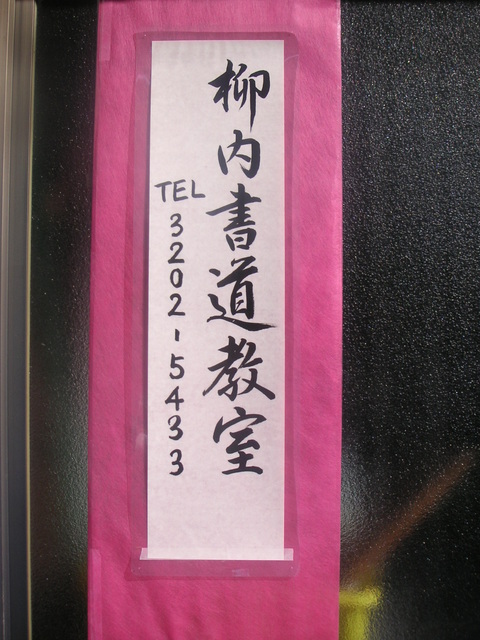 柳内書道教室
TEL 3202-5433